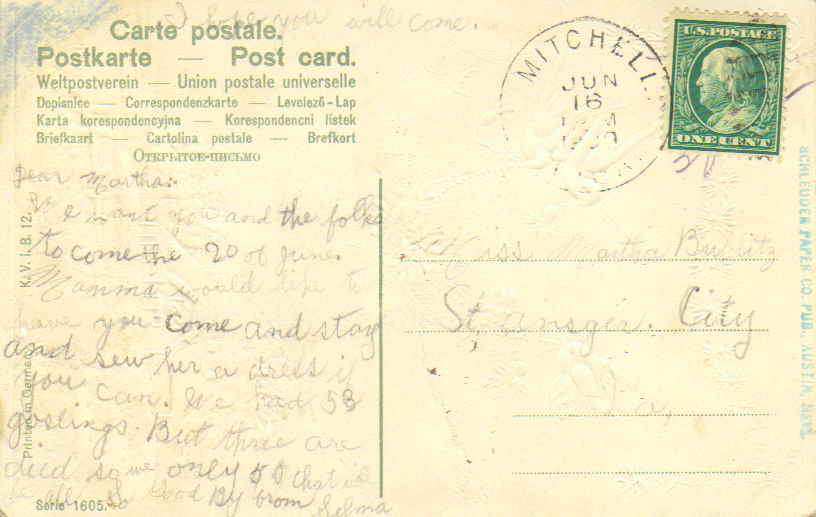 I hope you will come.
Carte postale.
Postkarte — Post card.
Weltpostverein — Union postale universelle
Dopisnice — Correspondenzkarte — Levelező-Lap
Karta korespondencyjna — Korespondencni listek
Briefkaart — Cartolina postale — Brefkort
Открытое-письмо
Dear Martha:
We want you and the folks
to come the 20 of June.
Mamma would like to
have you come and stay
and sew her a dress if
you can. We had 53
goslings. But three are
died so we only 50 that
all so load By from
Selma
Serie 1605.
K.V.i.B. 12.
Printed in Germany
MITCHELL
JUN
16
M
U.S. POSTAGE
ONE CENT
Miss Martha
St. Ansger. City
Ia,
SCHLEUDER PAPER CO. PUB., AUSTIN, MINN.